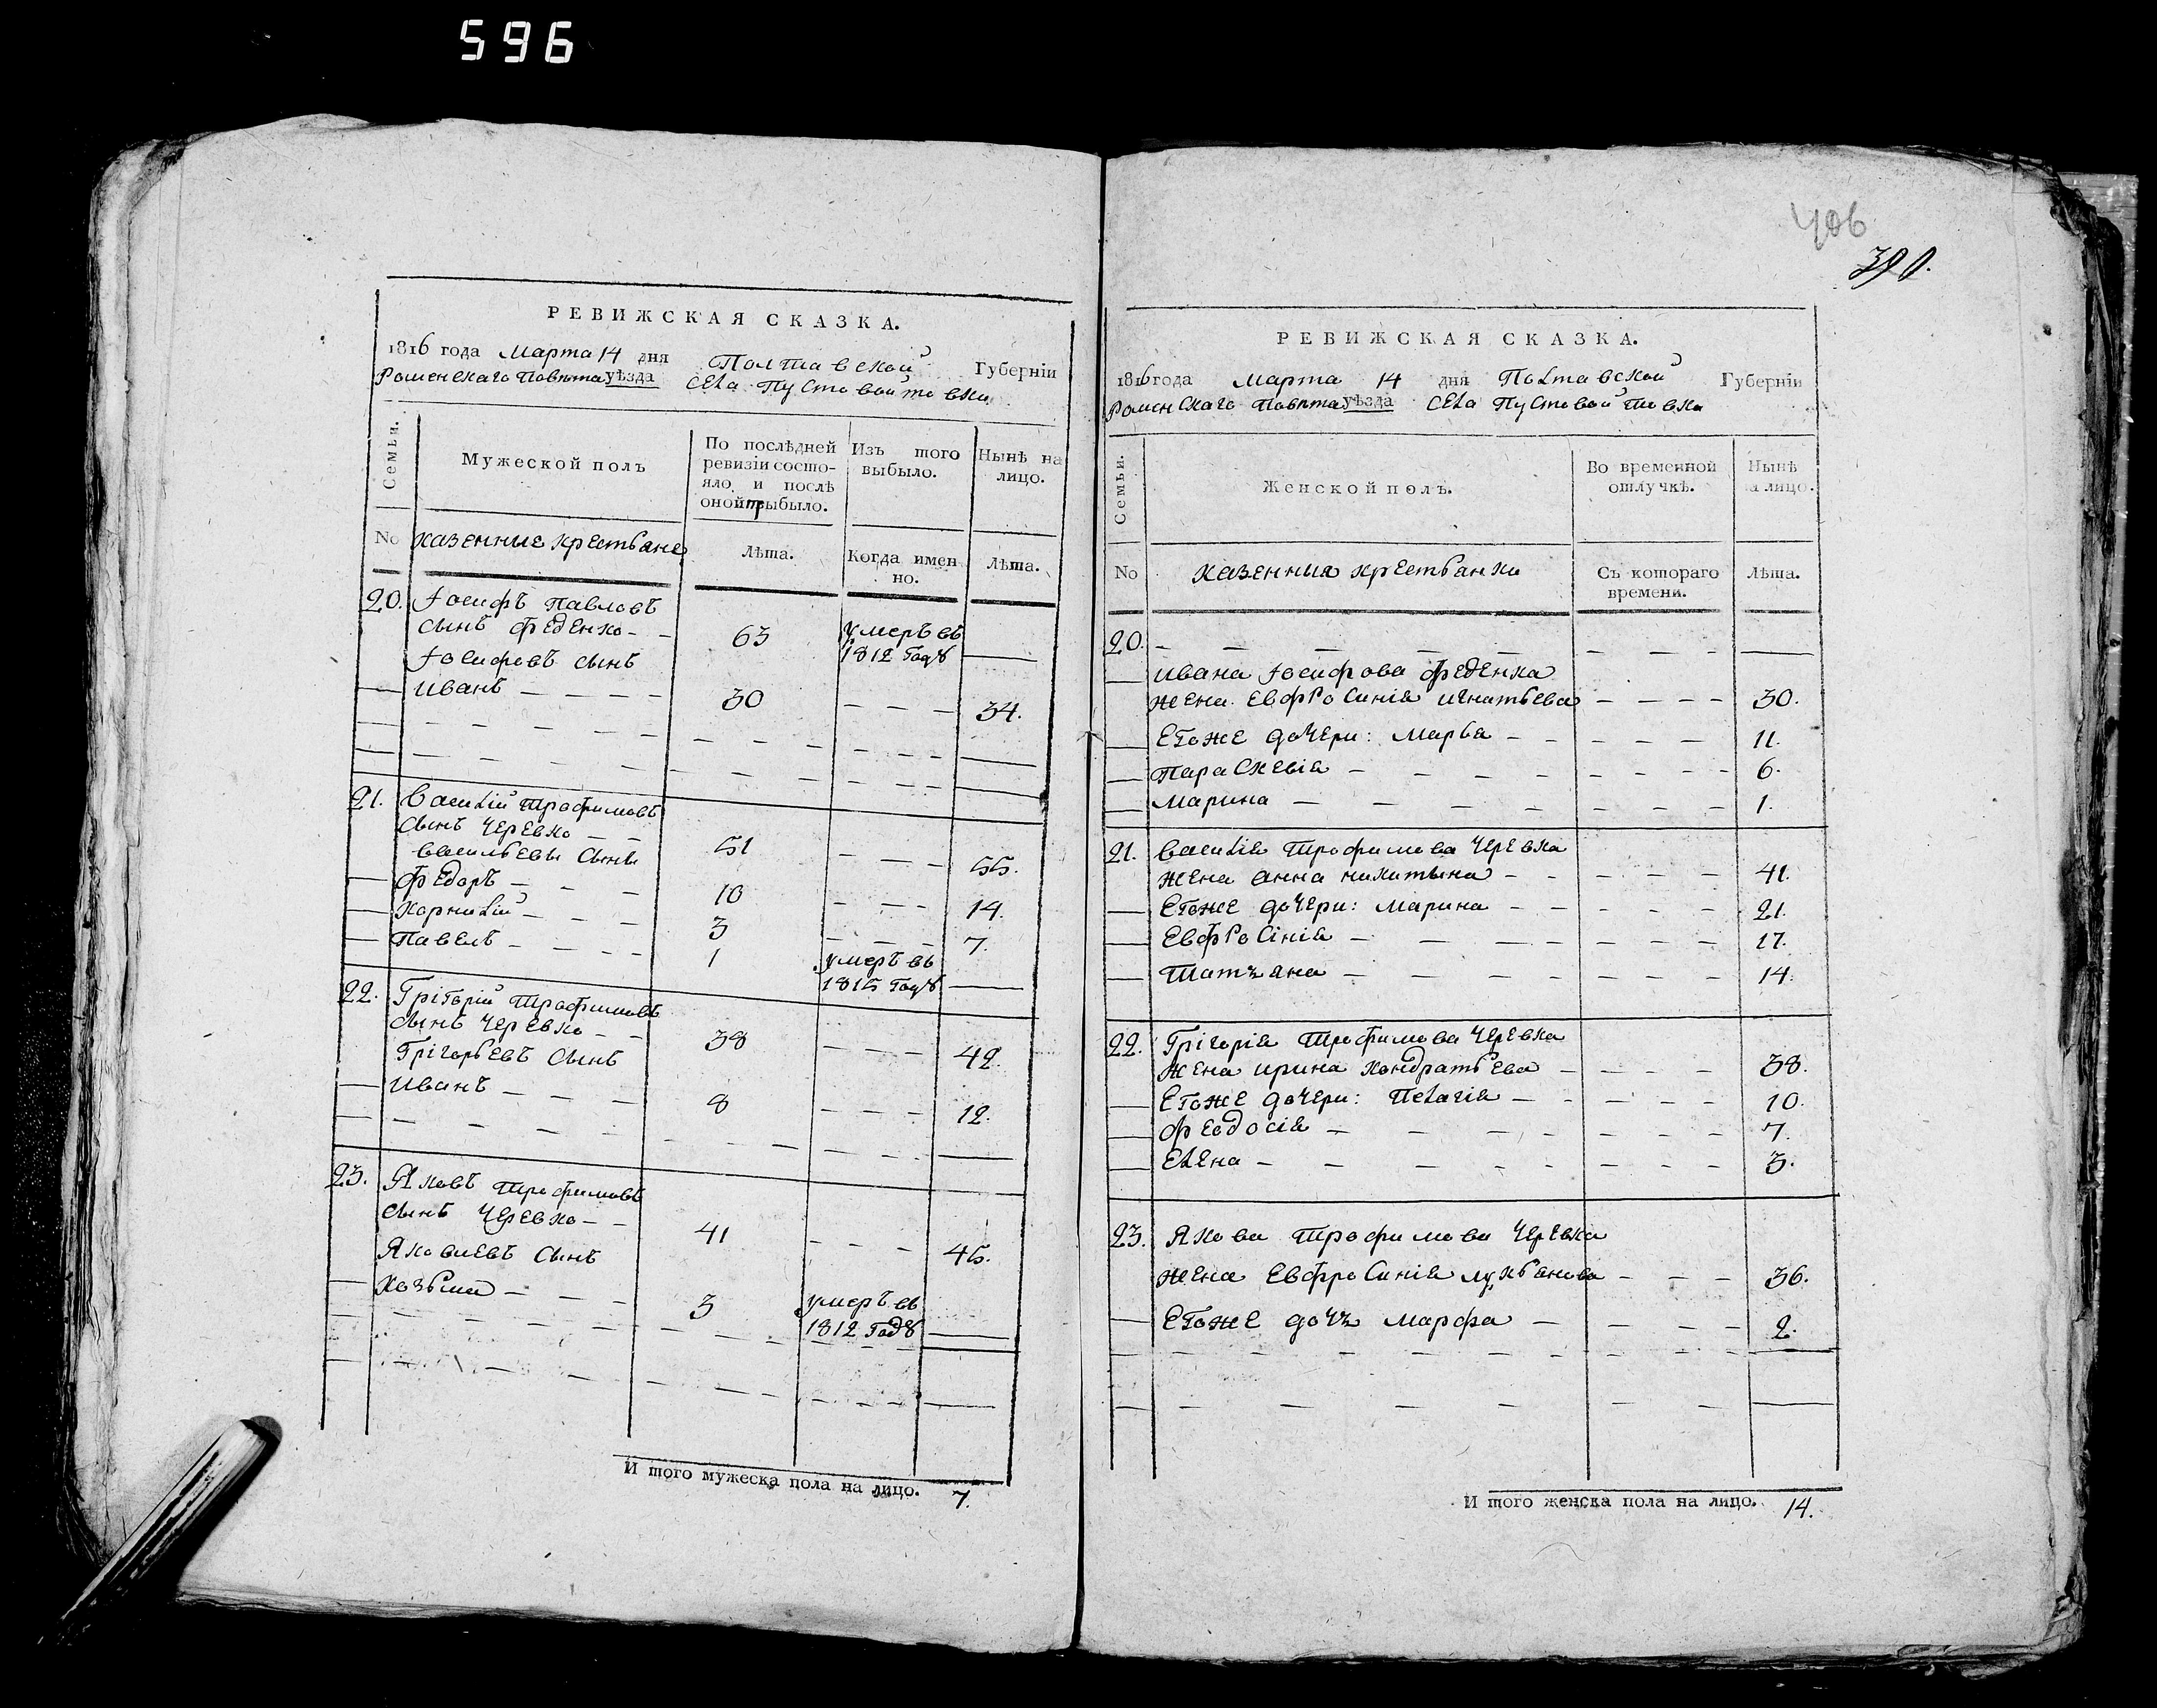 596
406
390.
РЕВИЖСКАЯ СКАЗКА.
1816 года Марта 14 дня Полтавской Губернїи
Роменскаго Повѣта уѣзда села Пустовойтовки
Семьи.
Мужеской полъ
По послѣдней ревизїи состо-
яло и послѣ
оной прибыло.
Изъ того
выбыло.
Нынѣ на
лицо.
No казенные крестьяне
Лѣта.
Когда имен
но.
Лѣта.
20. Іосифъ Павловъ
сынъ Феденко - - 63 умеръ въ
1812 годȣ —
Іосифовъ сынъ
— Иванъ - - - - 30 - - - 34.
21. Василій Трофимовъ
сынъ Черевко - - 51 - - - 55.
васильевы сыны
— Федоръ - - - 10 - - - 14.
— Корнилій - - - 3 - - - 7.
— Павелъ - - - - 1 умеръ въ
1815 годȣ —
22. Грігорій Трофимовъ
сынъ Черевко - - 38 - - - 42.
Грігорьевъ сынъ
— Иванъ - - - - 8 - - - 12.
23. Яковъ Трофимовъ
сынъ Черевко - - 41 - - - 45.
Яковлевъ сынъ
— Козьма - - - 3 умеръ въ
1812 годȣ —
И того мужеска пола на лицо. 7.
РЕВИЖСКАЯ СКАЗКА.
1816 года Марта 14 дня Полтавской Губернїи
Роменскаго Повѣта уѣзда села Пустовойтовки
Семьи.
Женской полъ.
Во временной
отлучкѣ.
Нынѣ
на лицо.
No казенныя крестьянки
Съ котораго
времени.
Лѣта.
20. - - - - - - - - —
— Ивана Іосифова Феденка
жена Евфросинія Игнатьева - - - - 30.
— Егоже дочери: Марья - - - - - 11.
— Параскевія - - - - - - - - 6.
— Марина - - - - - - - 1.
21. Василія Трофимова Черевка
жена Анна Никитына - - - - - 41.
— Егоже дочери: Марина - - - - - 21.
— Евфросінія - - - - - - - 17.
— Татъяна - - - - - - - 14.
22. Грігорія Трофимова Черевка
жена Ирина Кондратьева - - - - 38.
— Егоже дочери: Пелагія - - - - - 10.
— Феодосія - - - - - - - 7.
— Елена - - - - - - - - 3.
23. Якова Трофимова Черевка
жена Евфросинія Лукьянова - - - 36.
— Егоже дочъ Марфа - - - - 2.
И того женска пола на лицо. 14.